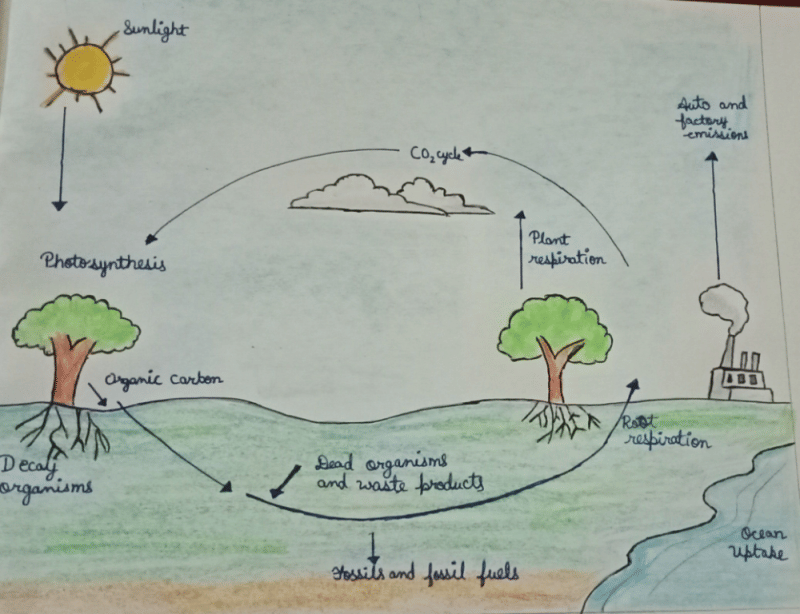 Sunlight
Auto and
factory
emissions
CO₂ cycle
Plant
respiration
Photosynthesis
Organic carbon
Root
respiration
Decay
organisms
Dead organisms
and waste products
Ocean
Uptake
Fossils and fossil fuels